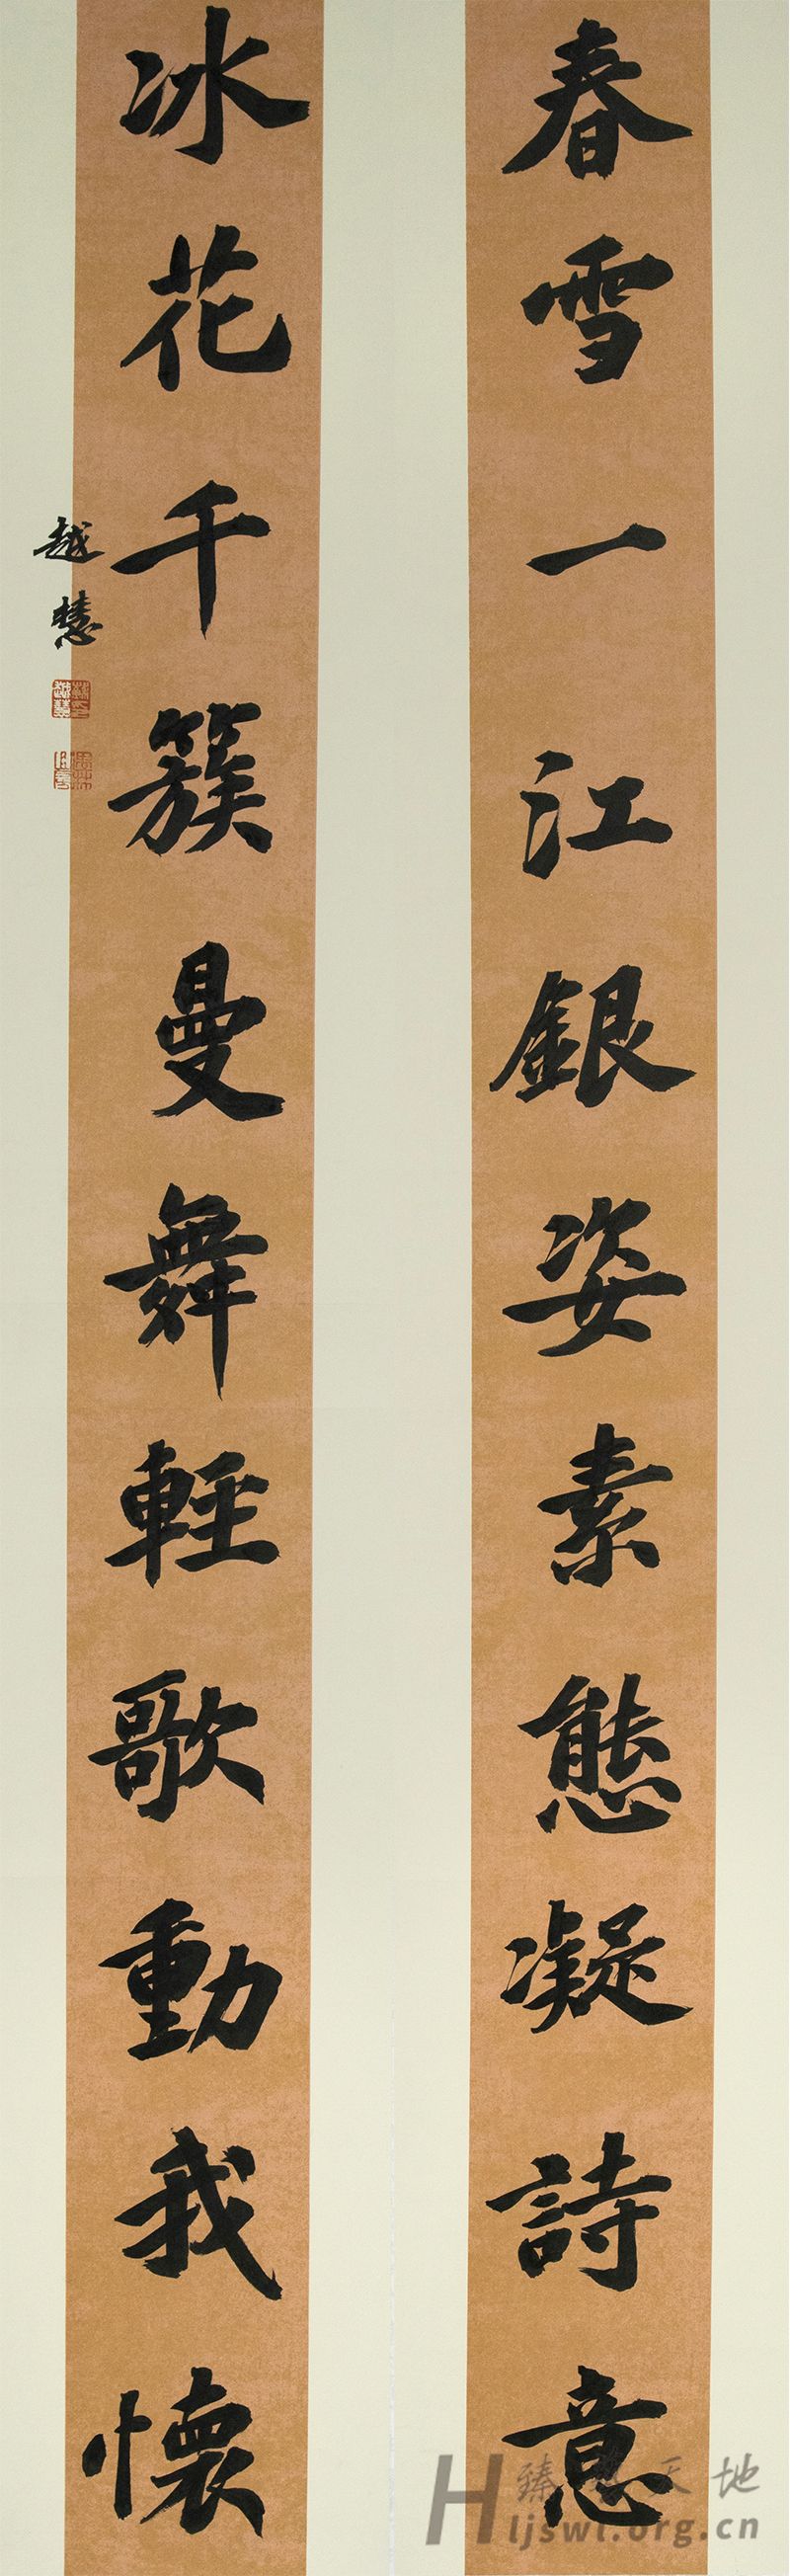 春雪一江銀姿素態凝詩意
冰花千簇曼舞輕歌動我懷
越慧
臻藝天地
Hljswl.org.cn